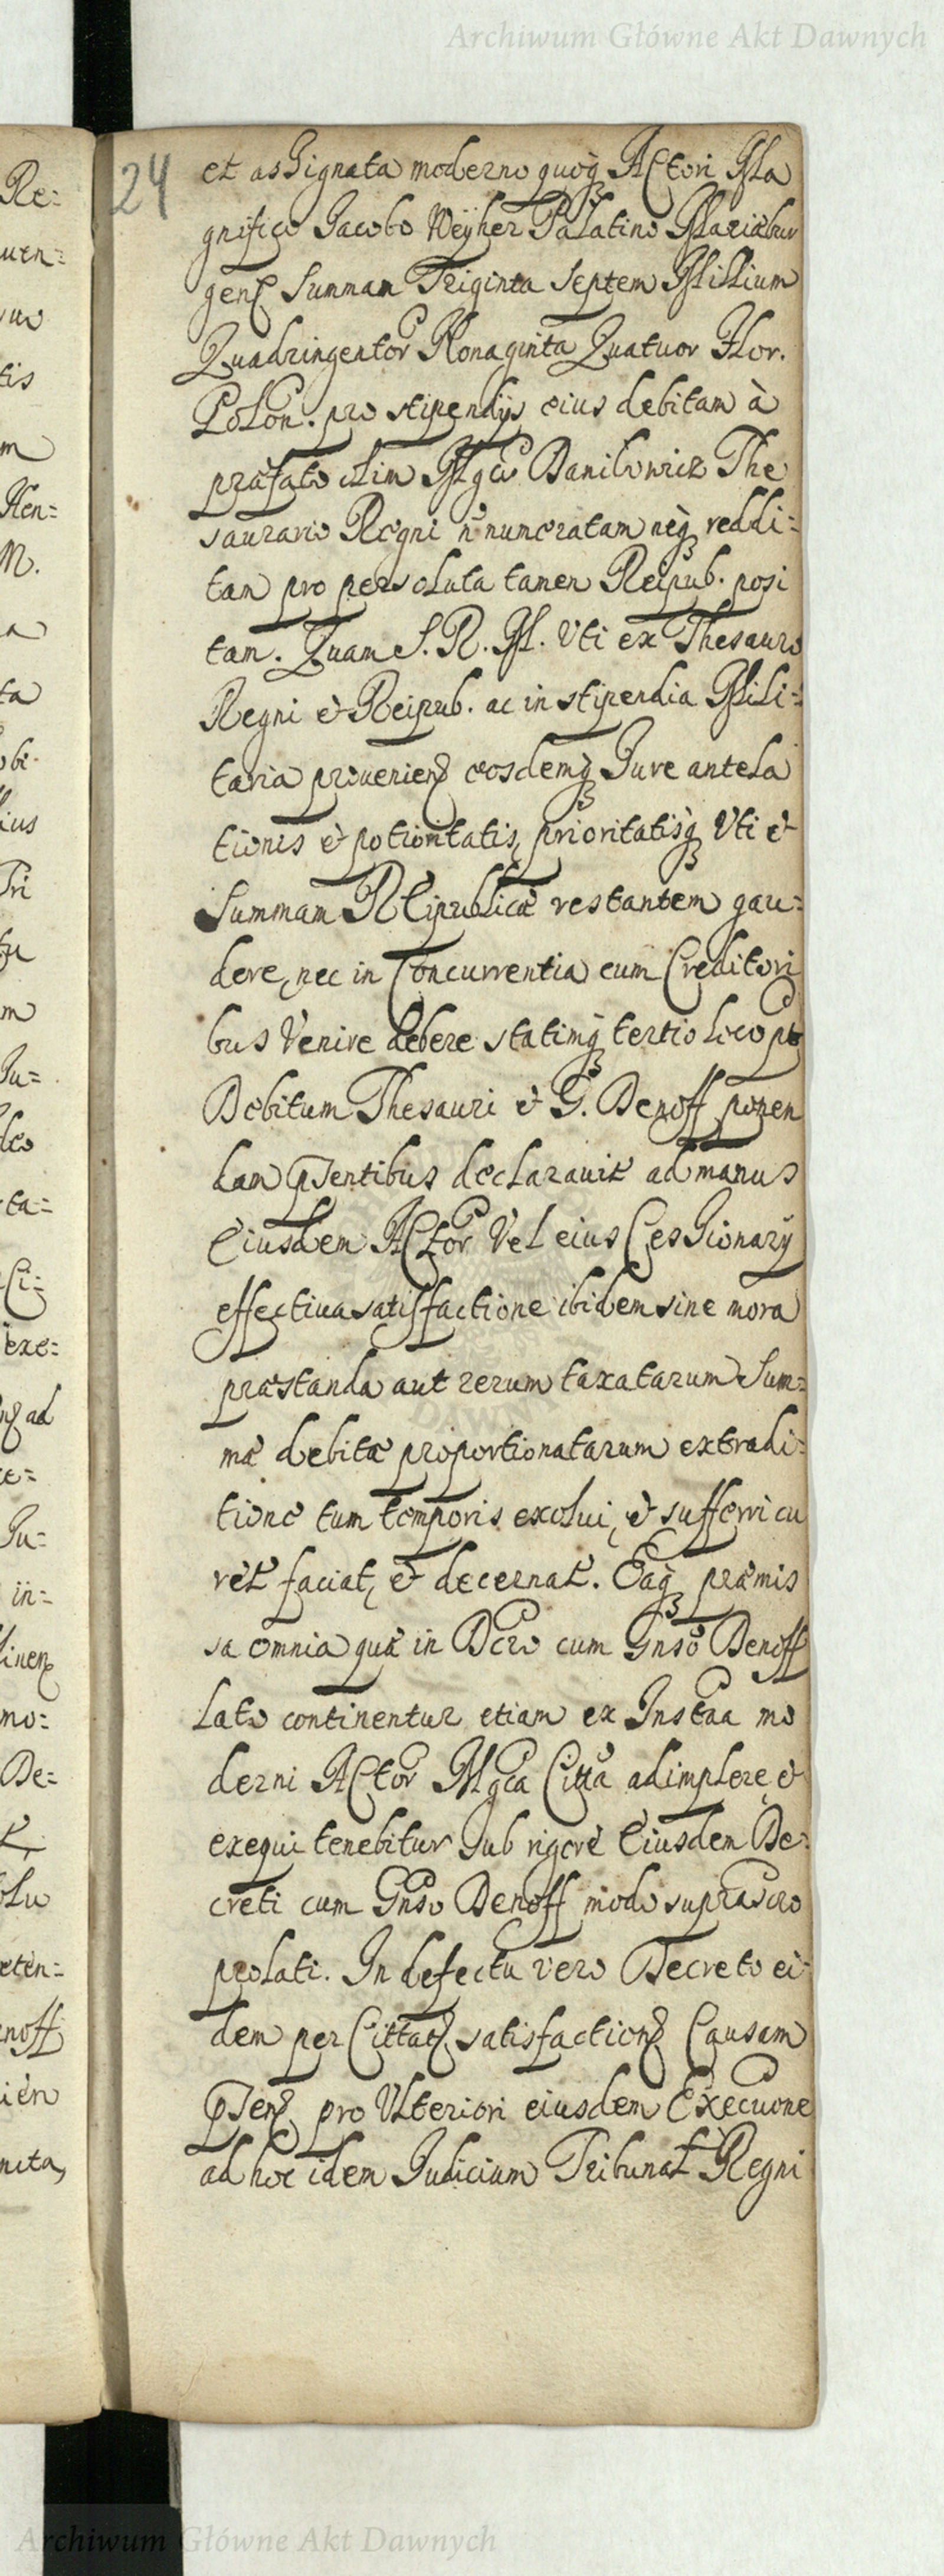 Archiwum Główne Akt Dawnych
24
et assignata moderno quoq Actori Ma
gnifico Jacobo Weyher Palatino Mariæbur
gens Summam Triginta Septem Millium
Quadringentor Nonaginta Quatuor Flor.
Polon. pro stipendijs eius debitam à
præfato olim Mgco Danilowicz The
saurario Regni n numeratam neq reddi:
tam pro persoluta tamen Reipub. posi
tam. Quam S. R. M. Vti ex Thesauro
Regni & Reipub. ac in stipendia Mili:
taria prouenien eosdemq Jure antela
tionis & potioritatis, prioritatisq Vti &
Summam Reipublicæ restantem gau:
dere, nec in Concurrentia cum Creditori
bus Venire debere statimq tertio loco pt
Debitum Thesauri & G. Denoff ponen
dam pntibus declarauit ad manus
Eiusdem Actor Vel eius Cessionarij
effectiua satisfactione ibidem sine mora
præstanda aut rerum taxatarum Sum:
mæ debitæ proportionatarum extradi:
tione tum temporis exolui, & sufferri cu
ret faciat, & decernat. Eaq præmis
sa omnia quæ in Dcro cum Gnso Denoff
Lato continentur etiam ex Instaa mo
derni Actor Mgca Citta adimplere &
exequi tenebitur Sub rigore Eiusdem De:
creti cum Gnso Denoff modo suprascro
prolati. In defectu vero Decreto ei:
dem per Cittat satisfaction Causam
pnsen pro Ulteriori eiusdem Execuone
ad hoc idem Judicium Tribunal Regni
Archiwum Główne Akt Dawnych